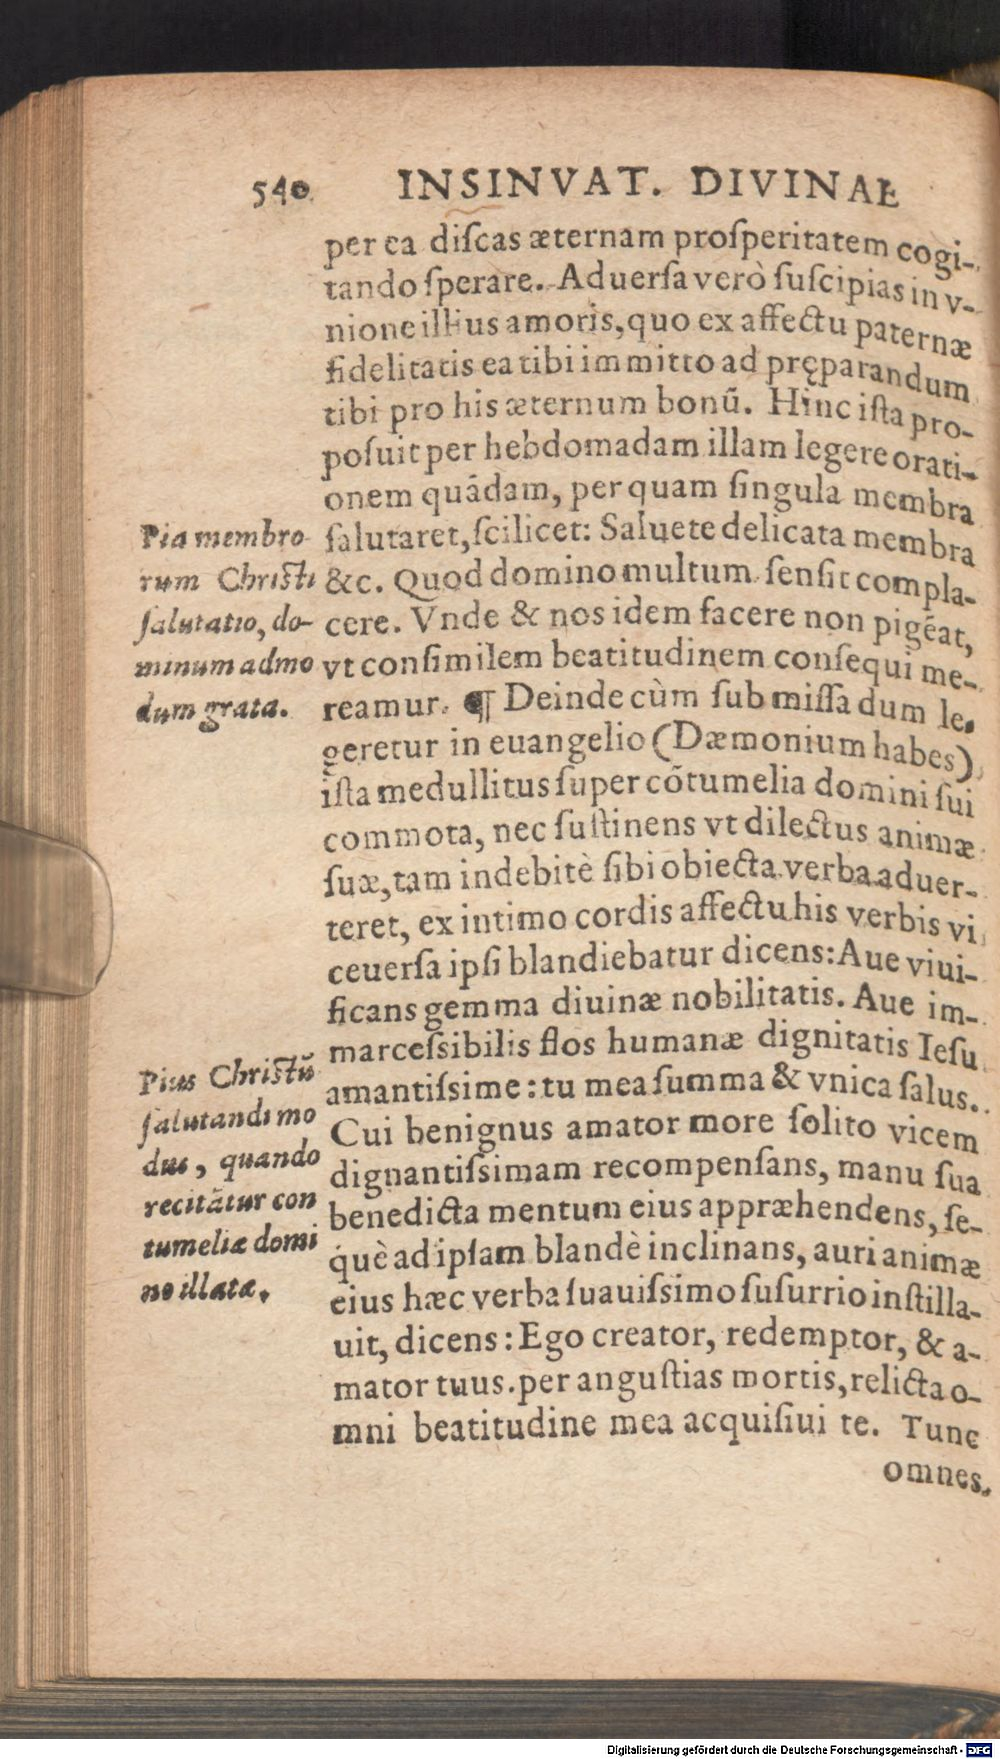 540 INSINVAT. DIVINAE
per ea diſcas æternam proſperitatem cogi-
tando ſperare. Aduerſa verò ſuſcipias in v-
nione illius amoris, quo ex affectu paternæ
fidelitatis ea tibi immitto ad pręparandum
tibi pro his æternum bonū. Hinc iſta pro-
poſuit per hebdomadam illam legere orati-
onem quādam, per quam ſingula membra
ſalutaret, ſcilicet: Saluete delicata membra
&c. Quod domino multum ſenſit compla-
cere. Vnde & nos idem facere non pigēat,
vt conſimilem beatitudinem conſequi me-
reamur. ¶ Deinde cùm ſub miſſa dum le-
geretur in euangelio (Dæmonium habes)
iſta medullitus ſuper cōtumelia domini ſui
commota, nec ſuſtinens vt dilectus animæ
ſuæ, tam indebitè ſibi obiecta verba aduer-
teret, ex intimo cordis affectu his verbis vi
ceuerſa ipſi blandiebatur dicens: Aue viui-
ficans gemma diuinæ nobilitatis. Aue im-
marceſsibilis flos humanæ dignitatis Ieſu
amantiſsime: tu mea ſumma & vnica ſalus.
Cui benignus amator more ſolito vicem
dignantiſsimam recompenſans, manu ſua
benedicta mentum eius appræhendens, ſe-
què ad ipſam blandè inclinans, auri animæ
eius hæc verba ſuauiſsimo ſuſurrio inſtilla-
uit, dicens: Ego creator, redemptor, & a-
mator tuus. per anguſtias mortis, relicta o-
mni beatitudine mea acquiſiui te. Tunc
omnes
Pia membro
rum Christi
ſalutatio, do-
minum admo
dum grata.
Pius Christū
ſalutandi mo
dus, quando
recitātur con
tumeliæ domi
no illatæ.
Digitalisierung gefördert durch die Deutsche Forschungsgemeinschaft - DFG